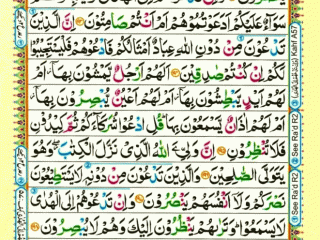 سَوَآءٌ عَلَيْكُمْ اَدَعَوْتُمُوْهُمْ اَمْ اَنْتُمْ صَامِتُوْنَ اِنَّ الَّذِيْنَ
تَدْعُوْنَ مِنْ دُوْنِ اللّٰهِ عِبَادٌ اَمْثَالُكُمْ فَادْعُوْهُمْ فَلْيَسْتَجِيْبُوْا
لَكُمْ اِنْ كُنْتُمْ صٰدِقِيْنَ اَلَهُمْ اَرْجُلٌ يَّمْشُوْنَ بِهَآ اَمْ
لَهُمْ اَيْدٍ يَّبْطِشُوْنَ بِهَآ اَمْ لَهُمْ اَعْيُنٌ يُّبْصِرُوْنَ بِهَآ اَمْ
لَهُمْ اٰذَانٌ يَّسْمَعُوْنَ بِهَا قُلِ ادْعُوْا شُرَكَآءَكُمْ ثُمَّ كِيْدُوْنِ
فَلَا تُنْظِرُوْنِ اِنَّ وَلِيِّ َۧ اللّٰهُ الَّذِيْ نَزَّلَ الْكِتٰبَ وَهُوَ
يَتَوَلَّى الصّٰلِحِيْنَ وَالَّذِيْنَ تَدْعُوْنَ مِنْ دُوْنِهٖ لَا يَسْتَطِيْعُوْنَ
نَصْرَكُمْ وَلَآ اَنْفُسَهُمْ يَنْصُرُوْنَ وَاِنْ تَدْعُوْهُمْ اِلَى الْهُدٰى
لَا يَسْمَعُوْا وَتَرٰىهُمْ يَنْظُرُوْنَ اِلَيْكَ وَهُمْ لَا يُبْصِرُوْنَ
Kahf A57
See Ra'd R2
See Ra'd R2